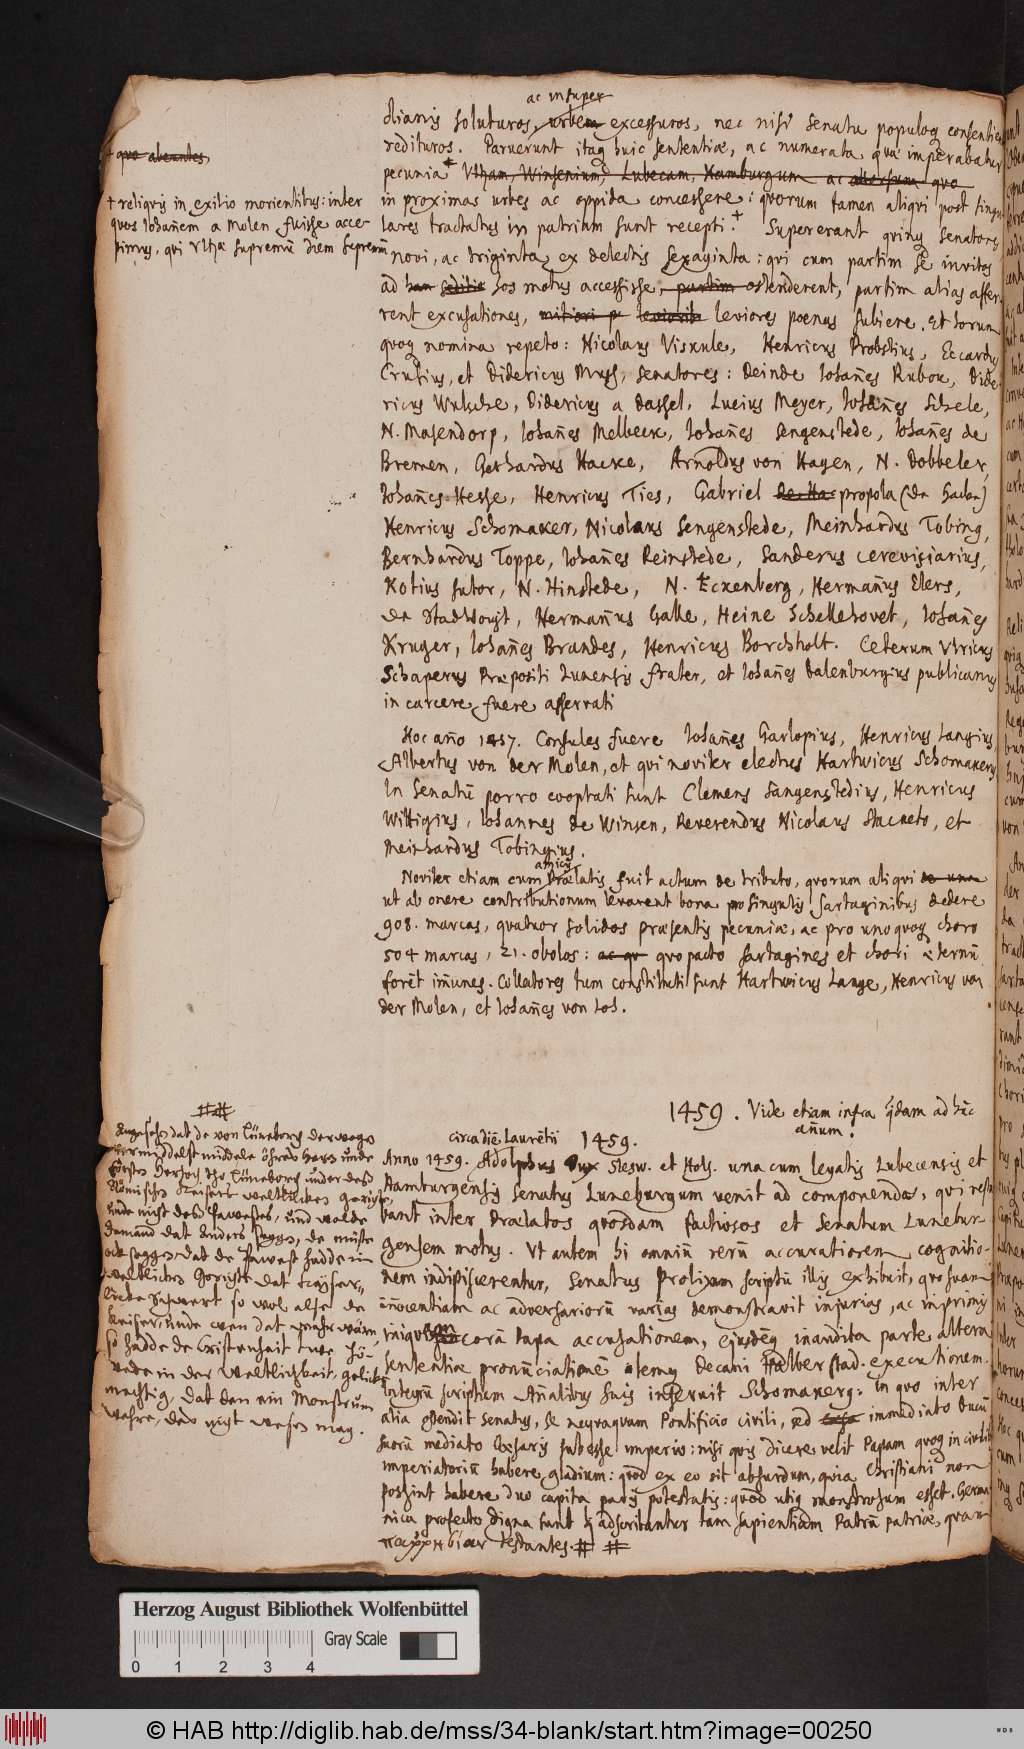 ac insuper
dianis soluturos, urbem excessuros, nec nisi Senatu populoq consentien
redituros. Paruerunt itaq huic sententiæ, ac numerata qua imperabatur
pecunia Vltzam, Winsenium, Lubecam, Hamburgum ac quo
in proximas urbes ac oppida concessere: quorum tamen aliqui post singu-
lares tractatus in patriam sunt recepti. Supererant quinq Senatores
novi, ac triginta ex delectis sexaginta: qui cum partim se invitos
ad hos motus accessisse, partim ostenderent, partim alias affer-
rent excusationes, leviores poenas subiere. Et horum
quoq nomina repeto: Nicolaus Viskule, Henricus Probstius, Eccardus
Crusius, et Didericus Muss, Senatores: Deinde Iohañes Rubou, Dide-
ricus Wulsche, Didericus a Dassel, Lucius Meyer, Iohañes Schele,
N. Masendorp, Iohañes Melbeck, Iohañes Sengenstede, Iohañes de
Bremen, Gerhardus Hacke, Arnoldus von Hagen, N. Dobbeler,
Iohañes Hesse, Henricus Ties, Gabriel propola (De Haken)
Henricus Schomaker, Nicolaus Sengenstede, Meinhardus Tobing,
Bernhardus Toppe, Iohañes Reinstede, Sanderus cerevisiarius,
Kotius sutor, N. Hinstede, N. Eckenberg, Hermañus Elers,
De Stadtvoigt, Hermañus Galle, Heine Schellehovet, Iohañes
Kruger, Iohañes Brandes, Henricus Borchholt. Ceterum Vlricus
Schaperus Præpositi Lunensis frater, et Iohañes Dalenburgius publicanus
in carcere fuere asserrati
Hoc año 1457. Consules fuere Iohañes Garlopius, Henricus Langius,
Albertus von der Molen, et qui noviter electus Hartwicus Schomakerus
In Senatū porro cooptati sunt Clemens Sangenstedius, Henricus
Wittigius, Iohannes de Winsen, Reverendus Nicolaus Stacketo, et
Meinhardus Tobingius.
amicis
Noviter etiam cum Prælatis fuit actum de tributo, quorum aliqui de una
ut ab onere contributionum levarent bona pro singulis sartaginibus dedere
908. marcas, quatuor solidos præsentis pecuniæ, ac pro unoquoq choro
504 marcas, 21. obolos: ac qu quo pacto sartagines et chori æternū
forēt imūnes. Collatores tum constituti sunt Hartwicus Lange, Henricus von
der Molen, et Iohañes von Loh.
1459. Vide etiam infra quædam ad hūc
añum.
circa diē Laurētii 1459.
Anno 1459. Adolphus Dux Slesw. et Hols. una cum legatis Lubecensis et
Hamburgensis Senatus Luneburgum venit ad componendos, qui resta
bant inter Prælatos quosdam factiosos et Senatum Lunebur-
gensem motus. Vt autem hi omniū rerū accuratiorem cognitio-
nem indipiscerentur, Senatus prolixum scriptū illis exhibuit, quo suam
iñocentiam ac adversariorū varias demonstravit injurias, ac inprimis
iniquam corā Papa accusationem, ejusdēq inaudita parte altera
sententiæ pronūciationē itemq Decani Halberstad. executionem.
Integrū scriptum Añalibus suis inseruit Schomakerg: in quo inter
alia ostendit Senatus, se neq̃uaquam Pontificio civili, sed immediato Ducū
suorū mediato Cæsaris subesse imperio: nisi quis dicere velit Papam quoq in civilib
imperiatoriū habere gladium: quod ex eo sit absurdum, quia Christiani non
possint habere duo capita paris potestatis: quod utiq monstrosum esset. Germa
nica profecto digna sunt q adscribantur tam sapientiam Patrū patriæ, quam
παρρησίαν testantes. # #
quo abeuntes
† reliquis in exilio morientibus: inter
quos Iohañem a Molen fuisse acce-
pimus, qui Vltzæ supremū diem
#
Angesehen dat de von Lüneborg derwegen
vermiddelst middele öhres Heren unde
Försten Hertoch tho Lüneborg under deß
Römischen Keisers weltlicken gerichte,
unde nicht deß Pawestes, und wolde
Jemand dat anders seggen, de müste
ock seggen dat de Pawest hadde im
weltlichen gerichte dat Keyser-
licke schwert so wol alse de
Keiser, unde wen dat wahr wäre,
so hadde de Cristenheit twe Hö-
vede in der weltlichkeit, gelick
mechtig, dat den ein Monstrum
wehre, das nicht wesen mag.
Herzog August Bibliothek Wolfenbüttel
Gray Scale
0 1 2 3 4
© HAB http://diglib.hab.de/mss/34-blank/start.htm?image=00250